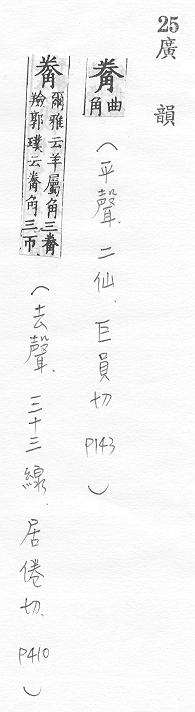 25 廣韻
觠 曲角 (平聲.二仙.巨員切 P143)
觠 爾雅云羊屬角三觠羷郭璞云觠角三帀 (去聲.三十三線.居倦切.P410)